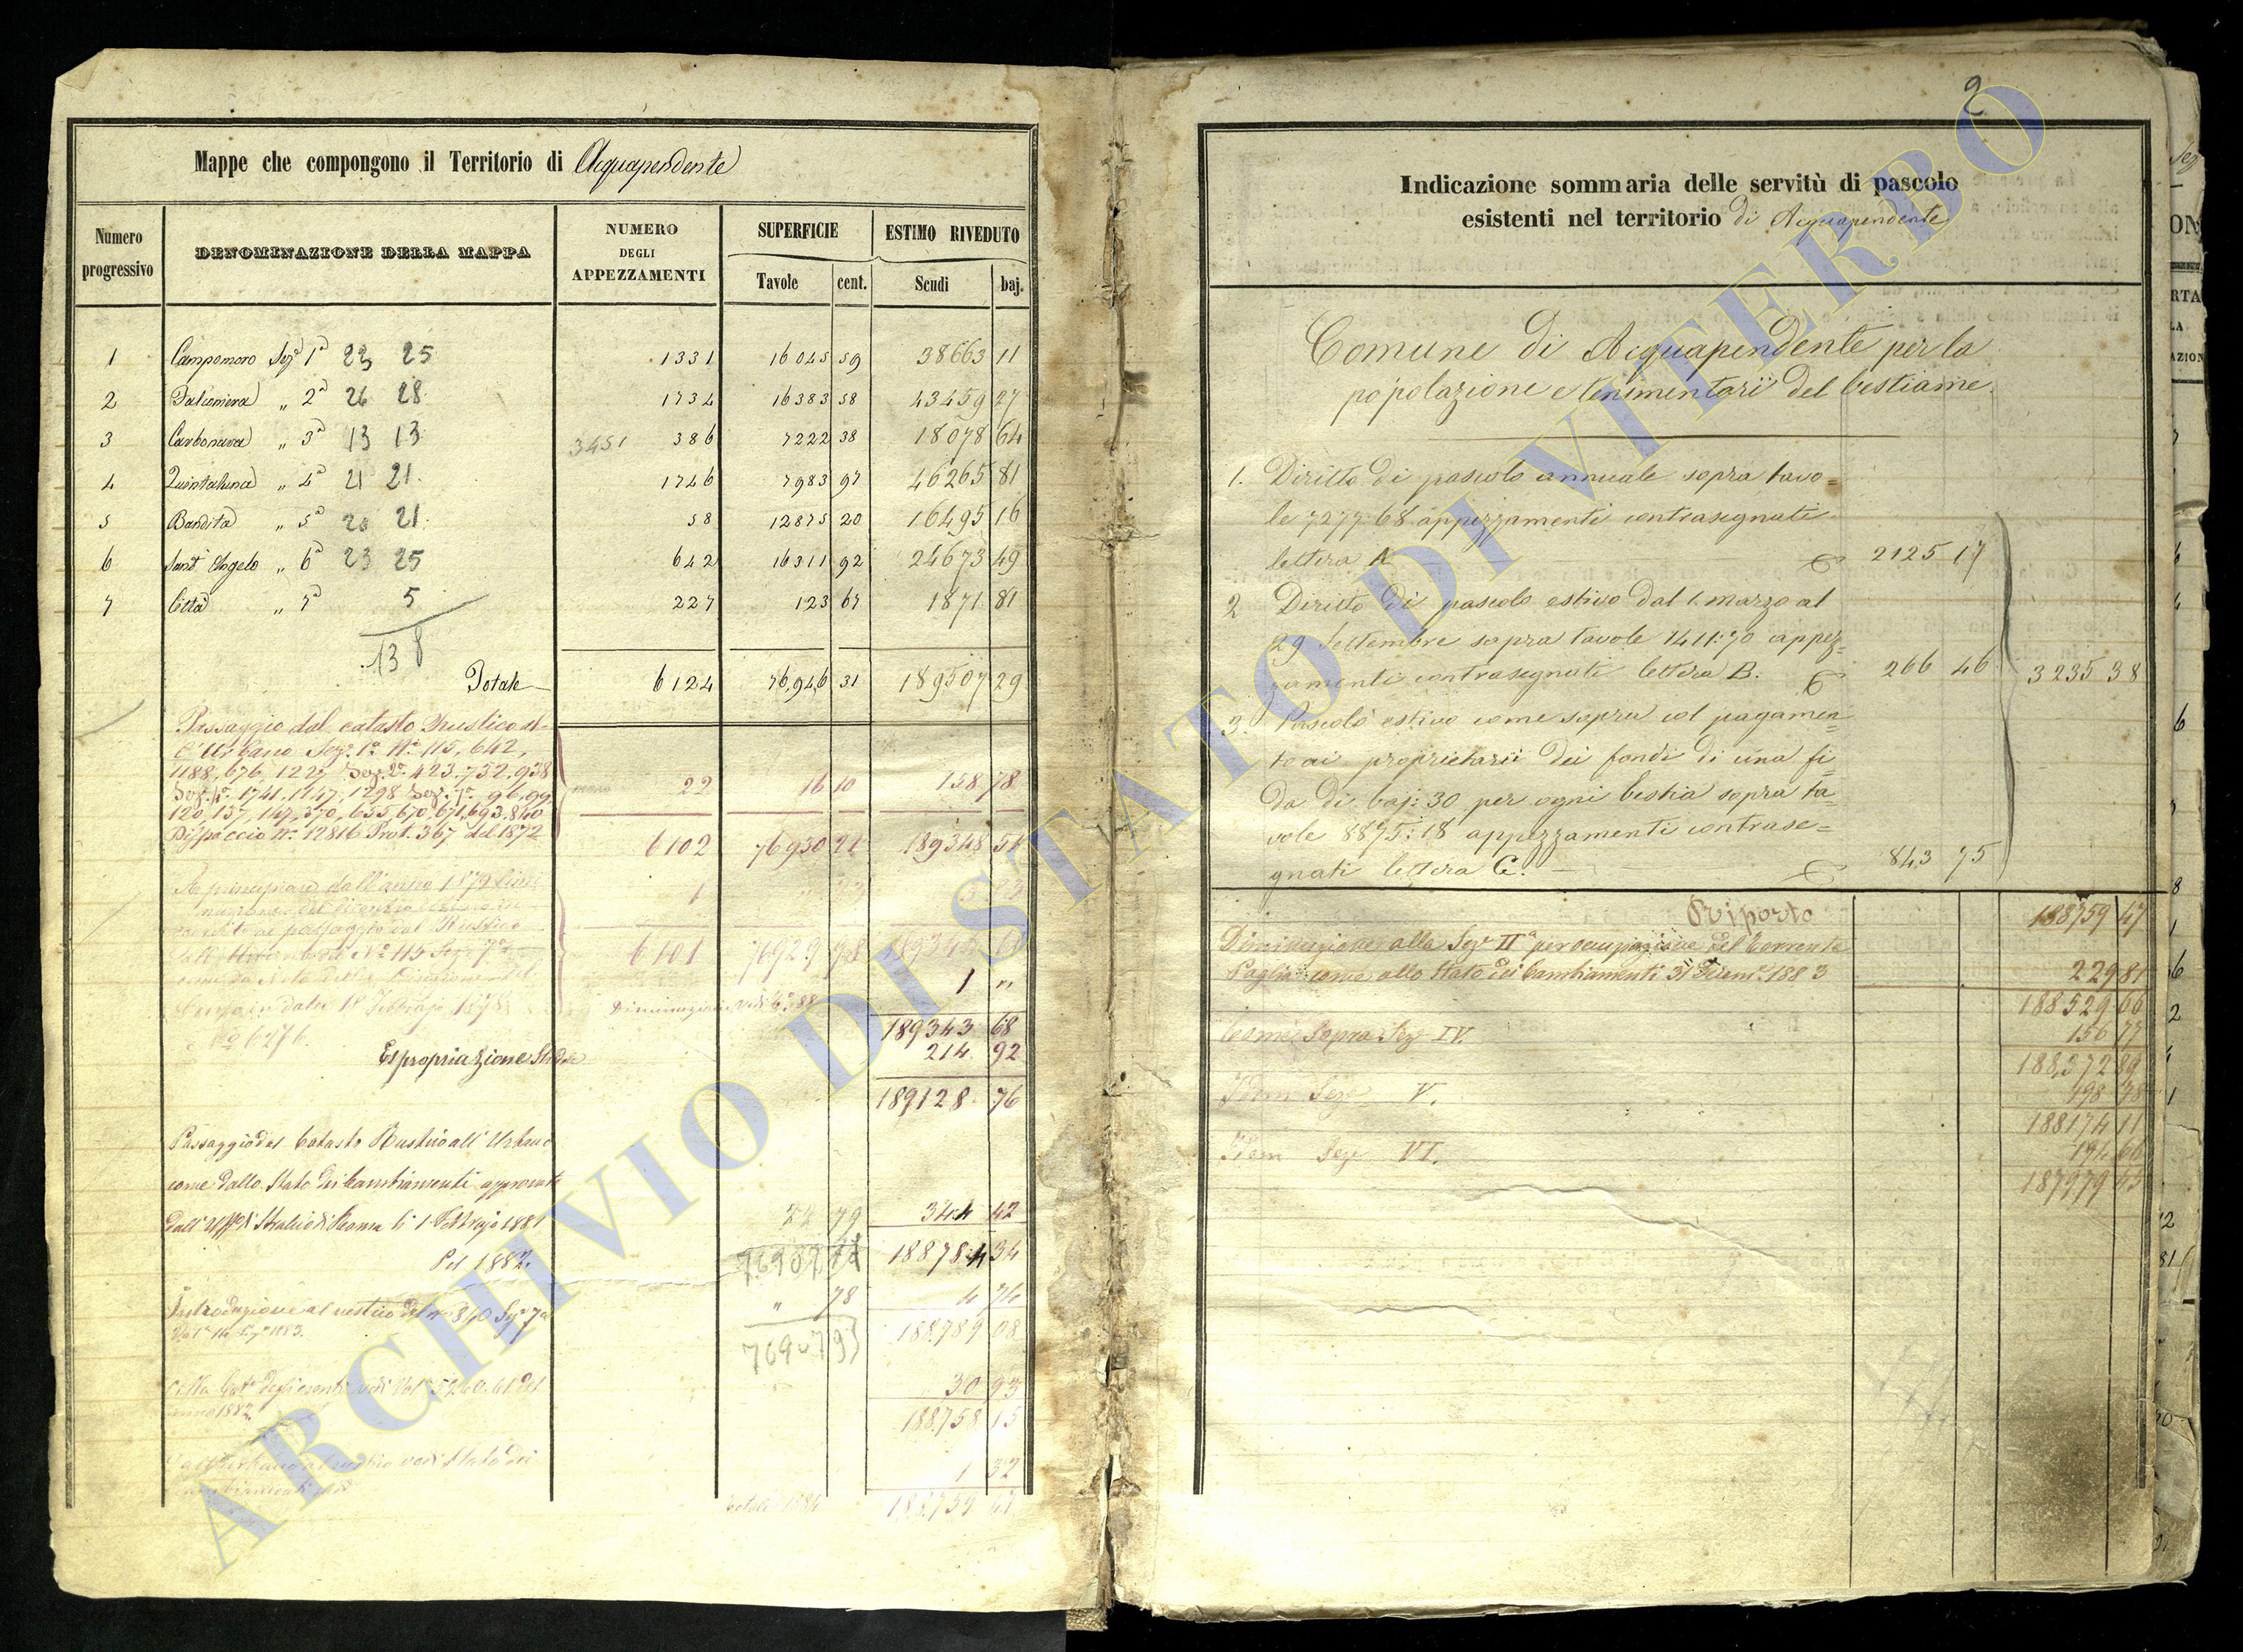 Mappe che compongono il Territorio di Acquapendente
Numero progressivo
DENOMINAZIONE DELLA MAPPA
NUMERO DEGLI APPEZZAMENTI
SUPERFICIE
ESTIMO RIVEDUTO
Tavole cent. Scudi baj.
1 Campomoro Sez.e 1a 23 25 1331 16045 59 38663 11
2 Falconiera „ 2a 26 28 1734 16383 58 43459 27
3 Carbonara „ 3a 13 13 3451 386 7222 38 18078 64
4 Quintaluna „ 4a 21 21 1746 7983 97 46265 81
5 Bandita „ 5a 20 21 58 12875 20 16495 16
6 Sant' Angelo „ 6a 23 25 642 16311 92 24673 49
7 Città „ 7a 5 227 123 67 1871 81
138
Totale 6124 76,946 31 189507 29
Passaggio dal catasto Rustico al-
l'Urbano Sez. 1a N.i 115, 642,
1188, 676, 1227 Sez. 2a 423. 732. 938
Sez. 4a 1741. 1147, 1298 Sez. 7a 96. 99 meno 22 16 10 158 78
120, 137, 147, 370, 655, 670, 671, 693, 840
Dispaccio N. 12816 Prot. 367 del 1872 6102 76930 21 189348 51
A principiare dall'anno 1879
1
passaggio dal Rustico
all'Urbano N.o 115 Sez. 7a 6101 76929 98
1 "
in data 18 Febbrajo 1878
Diminuzione
N.o 6276. 189343 68
Espropriazione Strade 214 92
189128 76
Passaggio dal Catasto Rustico all'Urbano
come dallo Stato dei Cambiamenti approvato
dall'Uff. di Stralcio di Roma li 1 Febbrajo 1881 79 344 42
Pel 1882. 76907 188784 34
Introduzione al rustico del n. 840 Sez. 7a " 78 4 74
1883. 188789 08
76907 93
30 93
anno 1882 188758 15
al rustico vedi Stato dei
1 32
Totale 1884 188759 47
2
Indicazione sommaria delle servitù di pascolo
esistenti nel territorio di Acquapendente
Comune di Acquapendente per la
popolazione e tenimentarii del bestiame.
1. Diritto di pascolo annuale sopra tavo=
le 7277:68 appezzamenti contrasegnati
lettera A 2125 17
2 Diritto di pascolo estivo dal 1. marzo al
29 Settembre sopra tavole 1411:70 appez-
zamenti contrasegnati lettera B. 266 46 3235 38
3. Pascolo estivo come sopra col pagamen=
to ai proprietarii dei fondi di una fi=
da di baj: 30 per ogni bestia sopra ta=
vole 8875:18 appezzamenti contrase=
gnati lettera C. 843 75
Riporto 188759 47
Diminuzione alla Sez.e IIa per occupazione del torrente
Paglia come allo Stato dei Cambiamenti 31 Dicem. 1883 229 81
188529 66
Come Sopra Sez.e IV. 156 77
188,372 89
Idem Seze V. 198 78
188174 11
Idem Seze VI. 194 66
187979 45
ARCHIVIO DI STATO DI VITERBO